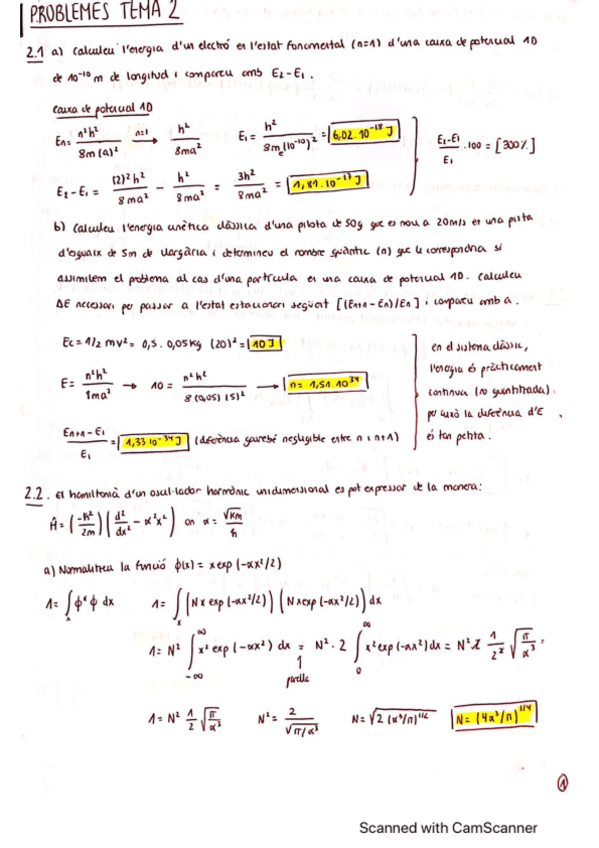 PROBLEMES TEMA 2
2.1 a) Calculeu l'energia d'un electró en l'estat fonamental (n=1) d'una caixa de potencial 1D
de 10⁻¹⁰ m de longitud i compareu amb E₂-E₁.
Caixa de potencial 1D
En = n²h² / 8m(a)² n=1 → h² / 8ma² E₁ = h² / 8mₑ(10⁻¹⁰)² = 6,02·10⁻¹⁸ J
E₂-E₁ = (2)²h² / 8ma² - h² / 8ma² = 3h² / 8ma² = 1,81·10⁻¹⁷ J
E₂-E₁ / E₁ · 100 = [300%]
b) Calculeu l'energia cinètica clàssica d'una pilota de 50g que es mou a 20m/s en una pista
d'esquaix de 5m de llargària i determineu el nombre quàntic (n) que li correspondria si
assimilem el problema al cas d'una partícula en una caixa de potencial 1D. Calculeu
ΔE necessari per passar a l'estat estacionari següent [(En+1-En)/En] i compareu amb a.
Ec = 1/2 mv² = 0,5 · 0,05kg (20)² = 10 J
E = n²h² / 8ma² → 10 = n²h² / 8(0,05)(5)² → n = 1,51·10³⁴
En+1-E₁ / E₁ = 1,33·10⁻³⁴ J (diferència gairebé negligible entre n i n+1)
en el sistema clàssic,
l'energia és pràcticament
contínua (no quantitzada).
per això la diferència d'E
és tan petita.
2.2. El hamiltonià d'un oscil·lador harmònic unidimensional es pot expressar de la manera:
Ĥ = (-ħ² / 2m)(d² / dx² - α²x²) on α = √km / ħ
a) Normalitzeu la funció ϕ(x) = x exp(-αx²/2)
1 = ∫ϕ*ϕ dx 1 = ∫(Nx exp(-αx²/2))(Nx exp(-αx²/2))dx
1 = N² ∫ x² exp(-αx²) dx = N² · 2 ∫ x² exp(-αx²)dx = N² 2 1 / 2² √π / α³
-∞ ∞ 0 ∞
1 = N² 1 / 2 √π / α³ N² = 2 / √π/α³ N = √2(α³/π)^1/2 N = (4α³/π)^1/4
1
Scanned with CamScanner